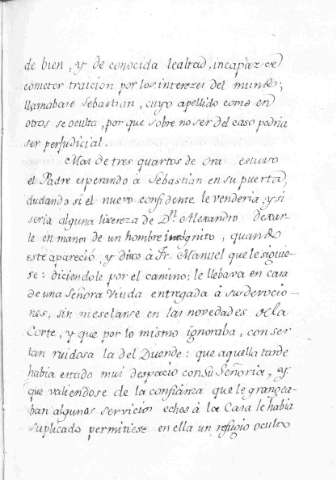 de bien, y de conocida lealtad, incapaz de
cometer traicion por los interezes del mundo;
llamabase Sebastian, cuyo apellido como en
otros se oculta, por que sobre no ser del caso podria
ser perjudicial.
Mas de tres quartos de ora estuvo
el Padre esperando à Sebastian en su puerta,
dudando si el nuevo confidente le venderia, y si
seria alguna lixereza de Dn. Alexandro dexar-
le en manos de un hombre incògnito, quando
este apareciò, y dixo à Fr. Manuel que le siguie-
se: diciendole por el camino; le llebava en casa
de una Señora Viuda entregada à su devocio-
nes, sin mesclarse en las novedades de la
Corte, y que por lo mismo ignoraba, con ser
tan ruidosa la del Duende: que aquella tarde
habia estado mui despacio con Su Señoria, y
que valiendose de la confianza que le grangea-
ban algunos servicios echos à la Casa le habia
suplicado permitiese en ella un refugio oculto